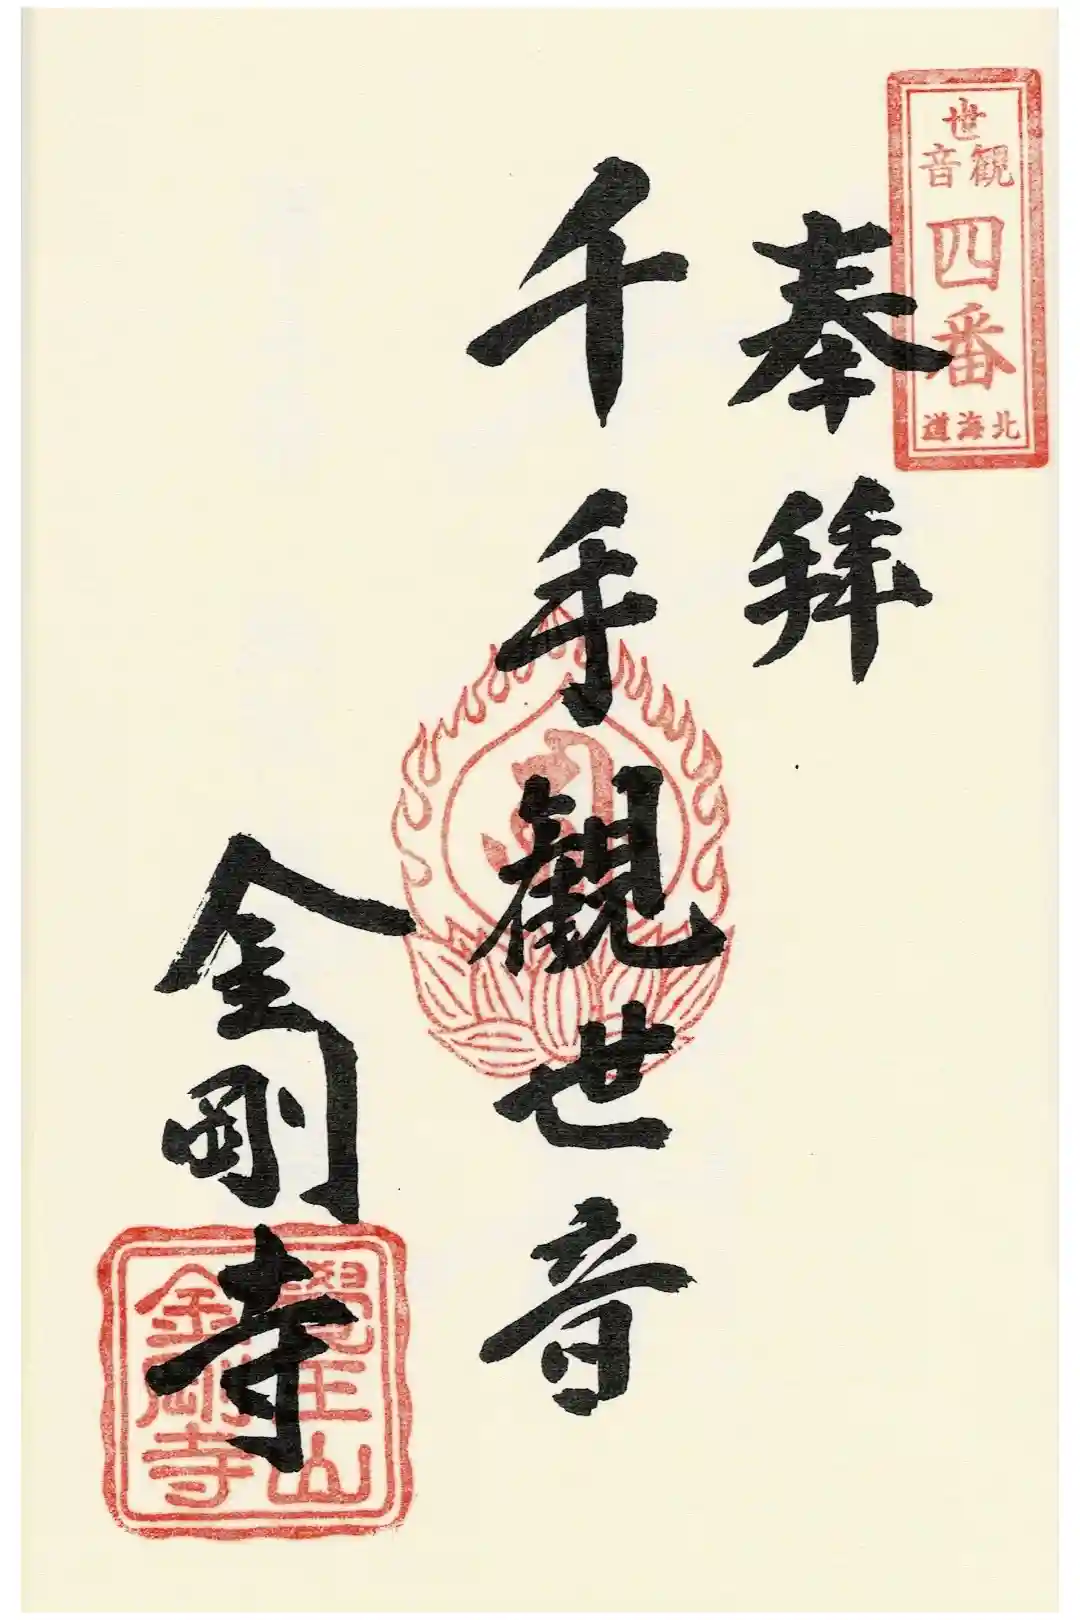 世
観音
四番
北海道
奉拝
千手観世音
金剛寺
覺王山
金剛寺